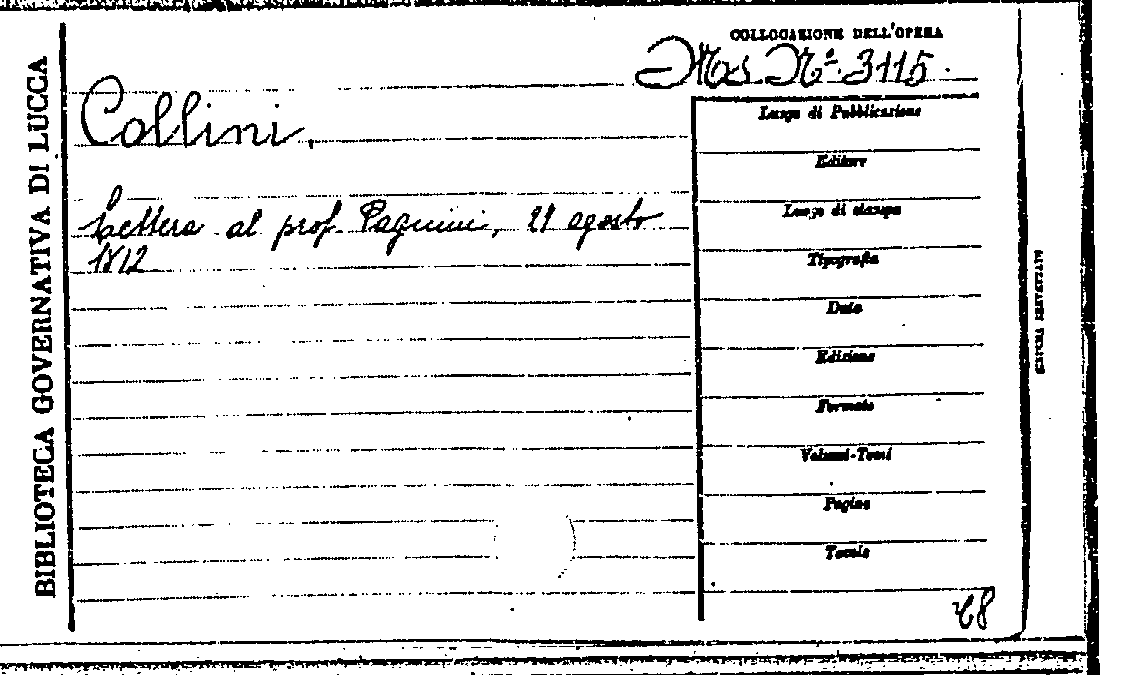 BIBLIOTECA GOVERNATIVA DI LUCCA
COLLOCAZIONE DELL'OPERA
Ms. N.º 3115.
Collini,
Lettera al prof. Pagnini, 21 agosto
1812
Luogo di Pubblicazione
Editore
Luogo di stampa
Tipografia
Data
Edizione
Formato
Volumi-Tomi
Pagine
Tavole